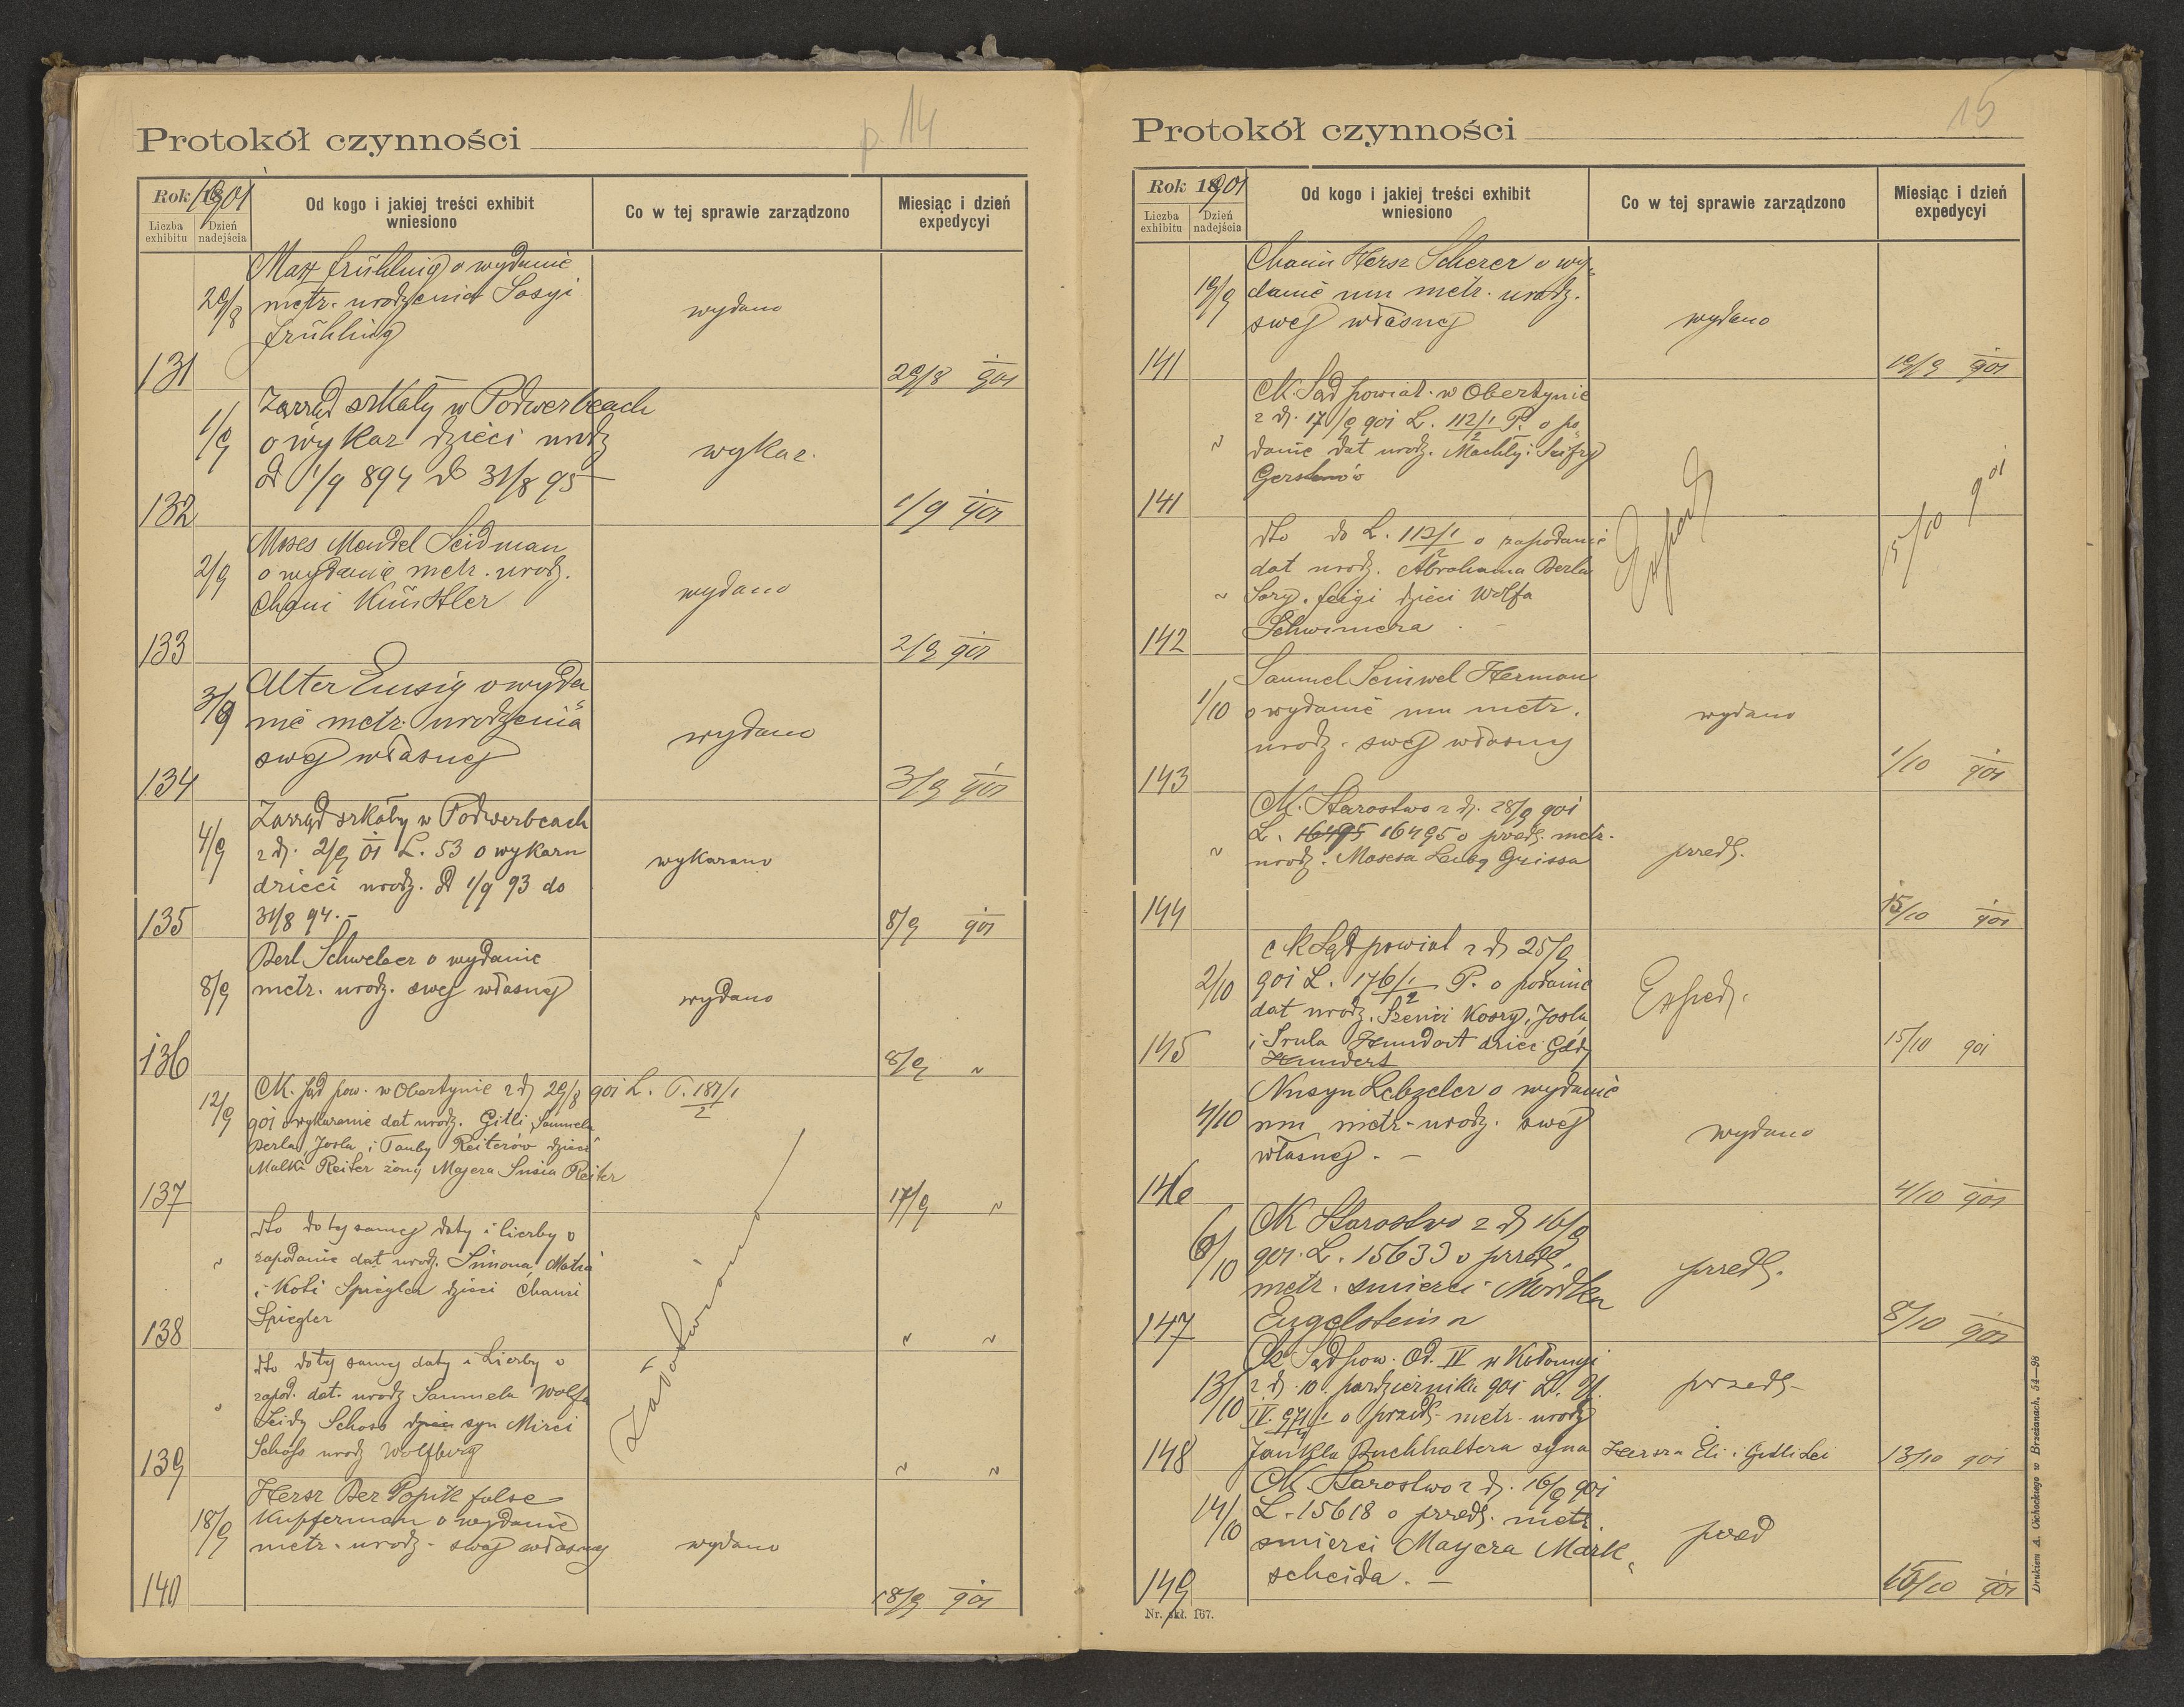 p. 14
Protokół czynności
Rok 1901
Liczba exhibitu
Dzień nadejścia
Od kogo i jakiej treści exhibit wniesiono
Co w tej sprawie zarządzono
Miesiąc i dzień expedycyi
Max Frühling o wydanie
29/8 metr. urodzenia Sosyi
Frühling
wydano
131 29/8 901
Zarząd szkoły w Podwerbcach
1/9 o wykaz dzieci urodz
od 1/9 894 do 31/8 95
wykaz.
132 1/9 901
Moses Mendel Seidman
2/9 o wydanie metr. urodz.
Chani Künstler
wydano
133 2/9 901
Alter Emsig o wyda
3/9 nie metr. urodzenia
swej własnej
wydano
134 3/9 901
Zarząd szkoły w Podwerbcach
4/9 z dn. 2/9 01 L. 53 o wykazu
dzieci urodz. od 1/9 93 do
31/8 94. –
wykazano
135 8/9 901
Berl Schweber o wydanie
8/9 metr. urodz. swej własnej
wydano
136 8/9 "
12/9 CK. Sąd pow. w Obertynie z dn 29/8 901 L. P. 181/1
2
901 o wykazanie dat urodz. Gitli, Samuela
Berla, Josla, i Tauby Reiterów dzieci
Malki Reiter żony Majera Susia Reiter
137 17/9 "
dto do tej samej daty i liczby o
" zapodanie dat urodz. Simona, Matia
i Koti Spiegler dzieci Chani
Spiegler
138 " "
dto do tej samej daty i Liczby o
" zapod. dat. urodz Samuela Wolfa
Seidy Schoss dzieci syn Mirci
Schoss urodz Wolfberg
Załatwiono
139 " "
Hersz Ber Popik false
18/9 Kupferman o wydanie
metr. urodz. swej własnej
wydano
140 18/9 901
15
Protokół czynności
Rok 1901
Liczba exhibitu
Dzień nadejścia
Od kogo i jakiej treści exhibit wniesiono
Co w tej sprawie zarządzono
Miesiąc i dzień expedycyi
Chaim Hersz Scherer o wy-
19/9 danie mu metr. urodz.
swej własnej
wydano
141 19/9 901
CK. Sąd powiat. w Obertynie
z dn. 17/9 901 L. 112/1 P. o po
2
" danie dat urodz. Machli i
141
dto do L. 112/1 o zapodanie
2
dat urodz. Abrahama Berla
" Sary, Feigi dzieci Wolfa
Schwimera
Exped
15/10 901
142
Samuel Seinwel Herman
1/10 o wydanie mu metr.
urodz. swej własnej
wydano
143 1/10 901
CK. Starostwo z dn. 28/9 901
L. 16495 16495 o przedł. metr.
" urodz. Mosesa
przedł.
144 15/10 901
c k Sąd powiat z dn 25/9
2/10 901 L. 176/1 P. o podanie
2
dat urodz. Josla
i Srula Hundert dzieci
Hundert
Exped.
145 15/10 901
Nusyn Lebzeler o wydanie
4/10 mu metr. urodz. swej
własnej. –
wydano
146 4/10 901
CK Starostwo z dn 16/9
6/10 901. L. 15633 o przedł.
metr. śmierci Mordka
Engelsteina
przedł.
147 8/10 901
Ck Sąd pow. Od. IV w Kołomyi
13/10 z dn. 10. października 901 L.
IV. 971/1 o przedł. metr. urodz
Jankla Buchhaltera syna Hersza Eli i Gitli Lei
przedł.
148 13/10 901
CK. Starostwo z dn. 16/9 901
14/10 L. 15618 o przedł. metr.
śmierci Mayera Mark-
scheida. –
przed
149 15/10 901
Nr. skł. 167.
Drukiem A. Cichockiego w Brzeżanach. 54—98